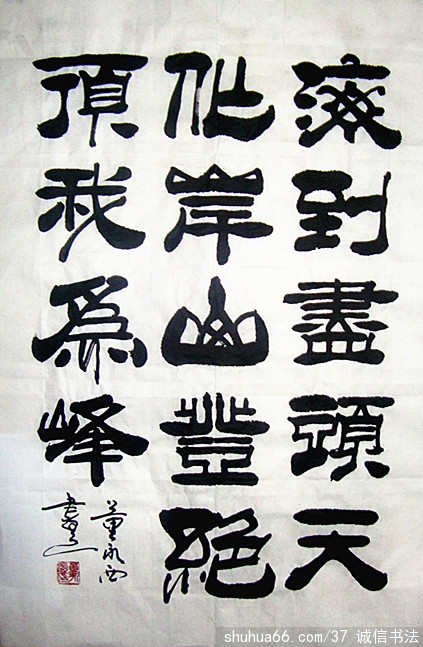 海到盡頭天
作岸山登絕
頂我爲峰
董永西
書
shuhua66.com/37 诚信书法